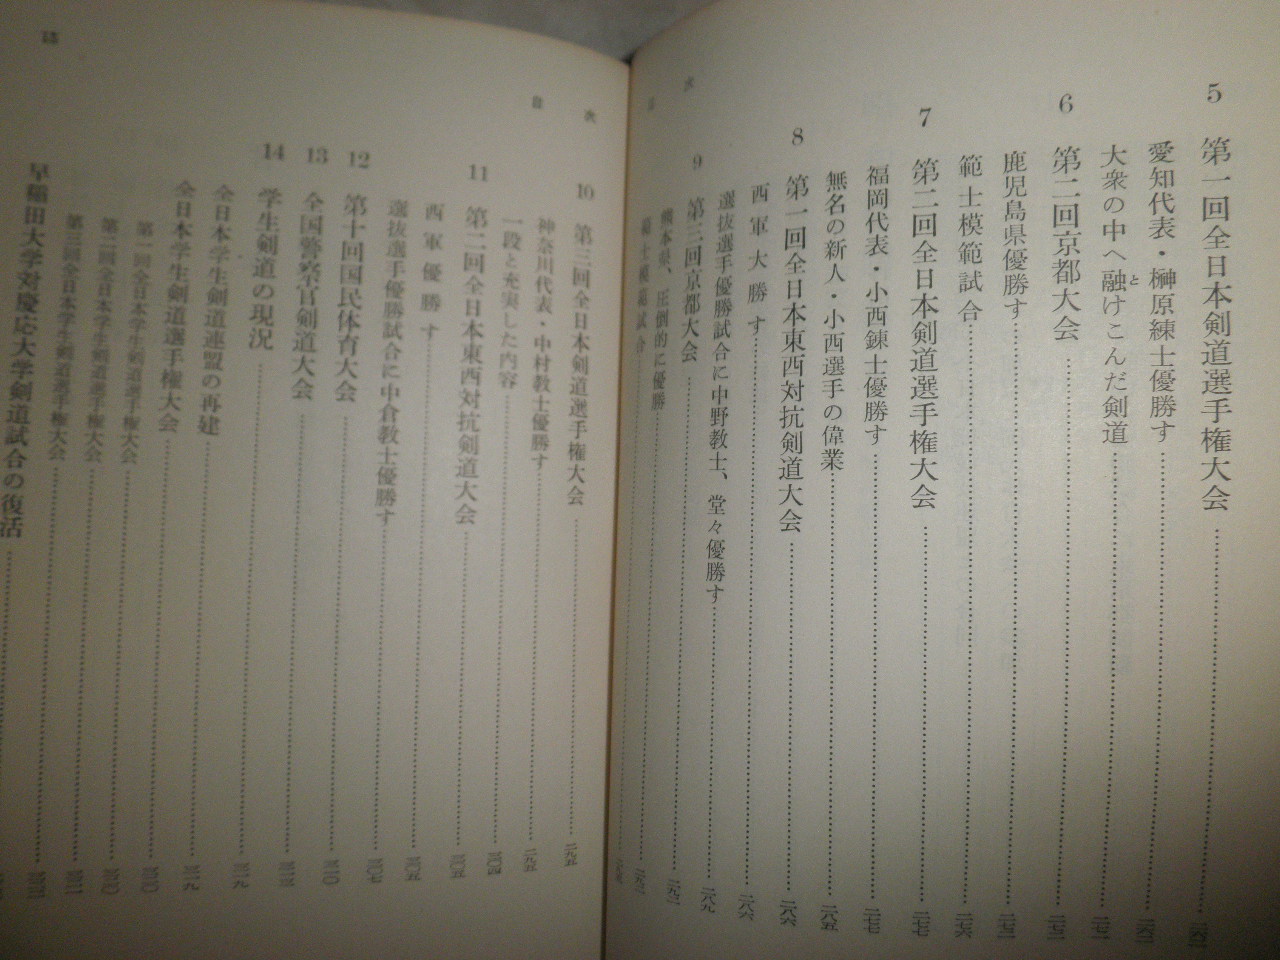 5 第一回全日本剣道選手権大会
愛知代表・榊原練士優勝す
大衆の中へ融けこんだ剣道
と
6 第二回京都大会
鹿児島県優勝す
範士模範試合
7 第二回全日本剣道選手権大会
福岡代表・小西錬士優勝す
無名の新人・小西選手の偉業
8 第一回全日本東西対抗剣道大会
西軍大勝す
選抜選手優勝試合に中野教士、堂々優勝す
9 第三回京都大会
熊本県、圧倒的に優勝
範士模範試合
二七二
二七三
二七三
二七六
二七七
二七七
二八五
二八六
二八六
二八九
二九二
次
目 次
10 第三回全日本剣道選手権大会 二九五
神奈川代表・中村教士優勝す 二九五
一段と充実した内容 三〇四
11 第二回全日本東西対抗剣道大会 三〇五
西軍優勝す 三〇五
選抜選手優勝試合に中倉教士優勝す 三〇七
12 第十回国民体育大会 三一〇
13 全国警察官剣道大会
14 学生剣道の現況 三一九
全日本学生剣道連盟の再建
全日本学生剣道選手権大会 三一九
第一回全日本学生剣道選手権大会
第二回全日本学生剣道選手権大会
第三回全日本学生剣道選手権大会
早稲田大学対慶応大学剣道試合の復活